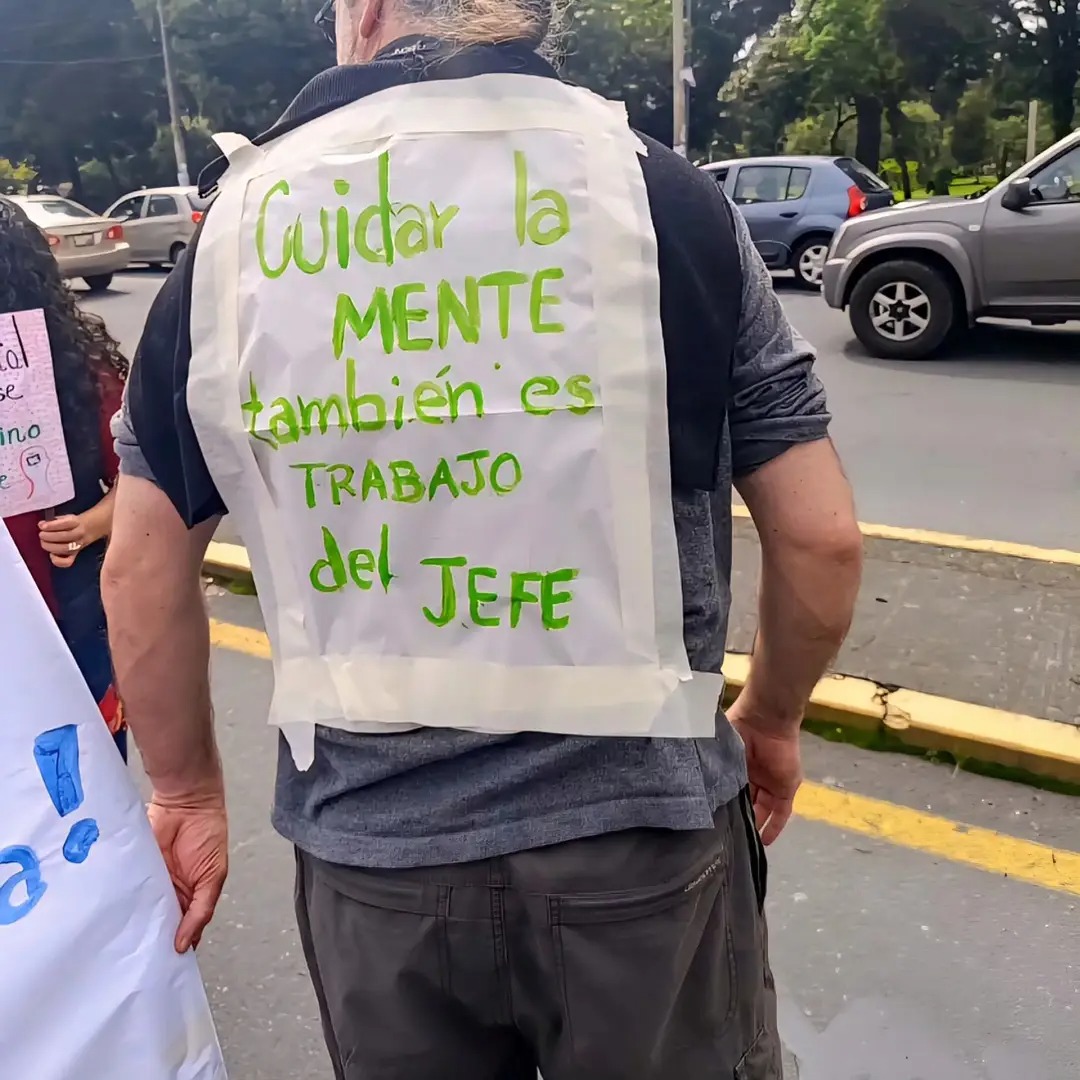 Cuidar la
MENTE
también es
TRABAJO
del JEFE
ial
se
ino
e
!
a.